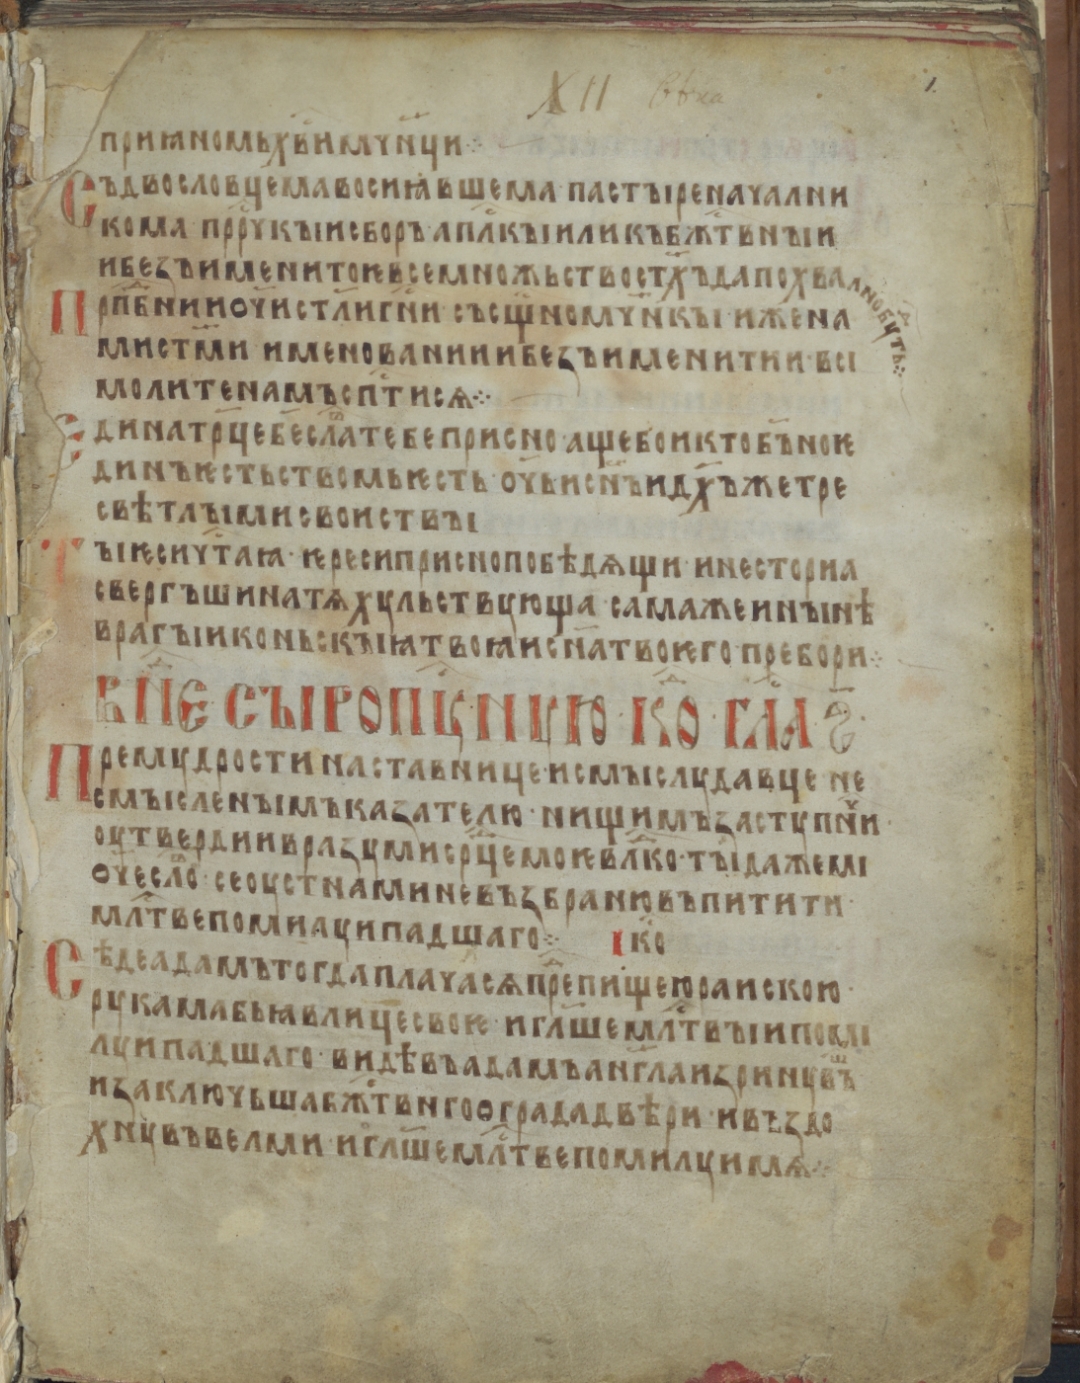 XII вѣка
1.
приꙗномьх҃ви мч҃нци⁘
Съдвословцема восиꙗвшема · пастыреначални
кома · прⷪ҇рчкыи сборъ · ап҃лкыи ликъ бж҃твныи
и безъименитоѥ все множьство ст҃хъ да похвалнобꙋⷣть⁘
Прпⷣбнии оч҃и ст҃лиг҃ни · съсщ҃номч҃нкы · и жена
ми ст҃ми · именованиии безъименитии · вси
молитенамъ сп҃тисѧ⁘
Єдинатрⷪ҇це бесл҃а тебе присно · аще бо и кто бъ҃ноѥ
динъѥстьствомь ѥсть · оц҃ь и сн҃ъ и дх҃ъ же тре
свѣтлыми своиствы
Тыѥси чⷭ҇таꙗ · ѥреси присно побѣдѧщи · и несториꙗ
свергъши на тѧ хꙋльствꙋюща · самаже и нынѣ
врагы иконьскыꙗ твоꙗ и сн҃а твоѥго пребори⁘
В нⷣе сыропⷭ҇ꙋнꙋю · кⷣо · глⷭ҇а · ѕ҃ ·
Премꙋдрости наставнице · и смыслꙋдавце · не
смысленымъ казателю · нищимъ застꙋпнч҃е
оутверди и вразꙋми ср҃це моѥ вл҃ко · ты даже ми
оч҃е сл҃о · се оустнами невъзбраню въпити ти ·
мл҃тве помилꙋи падшаго⁘ Iко
Сѣде адамъ тогда плачасѧ прⷣе пищею раискою ·
рꙋкамабьꙗ влице своѥ · и гл҃ше мл҃твыи поми
лꙋи падшаго · видѣвъ адамъ анг҃ла изринꙋвъ҃ш
и заключьша бж҃твнго ограда двѣри · и въздо
хнꙋвъ велми · и гл҃ше мл҃тве помилꙋи мѧ⁘